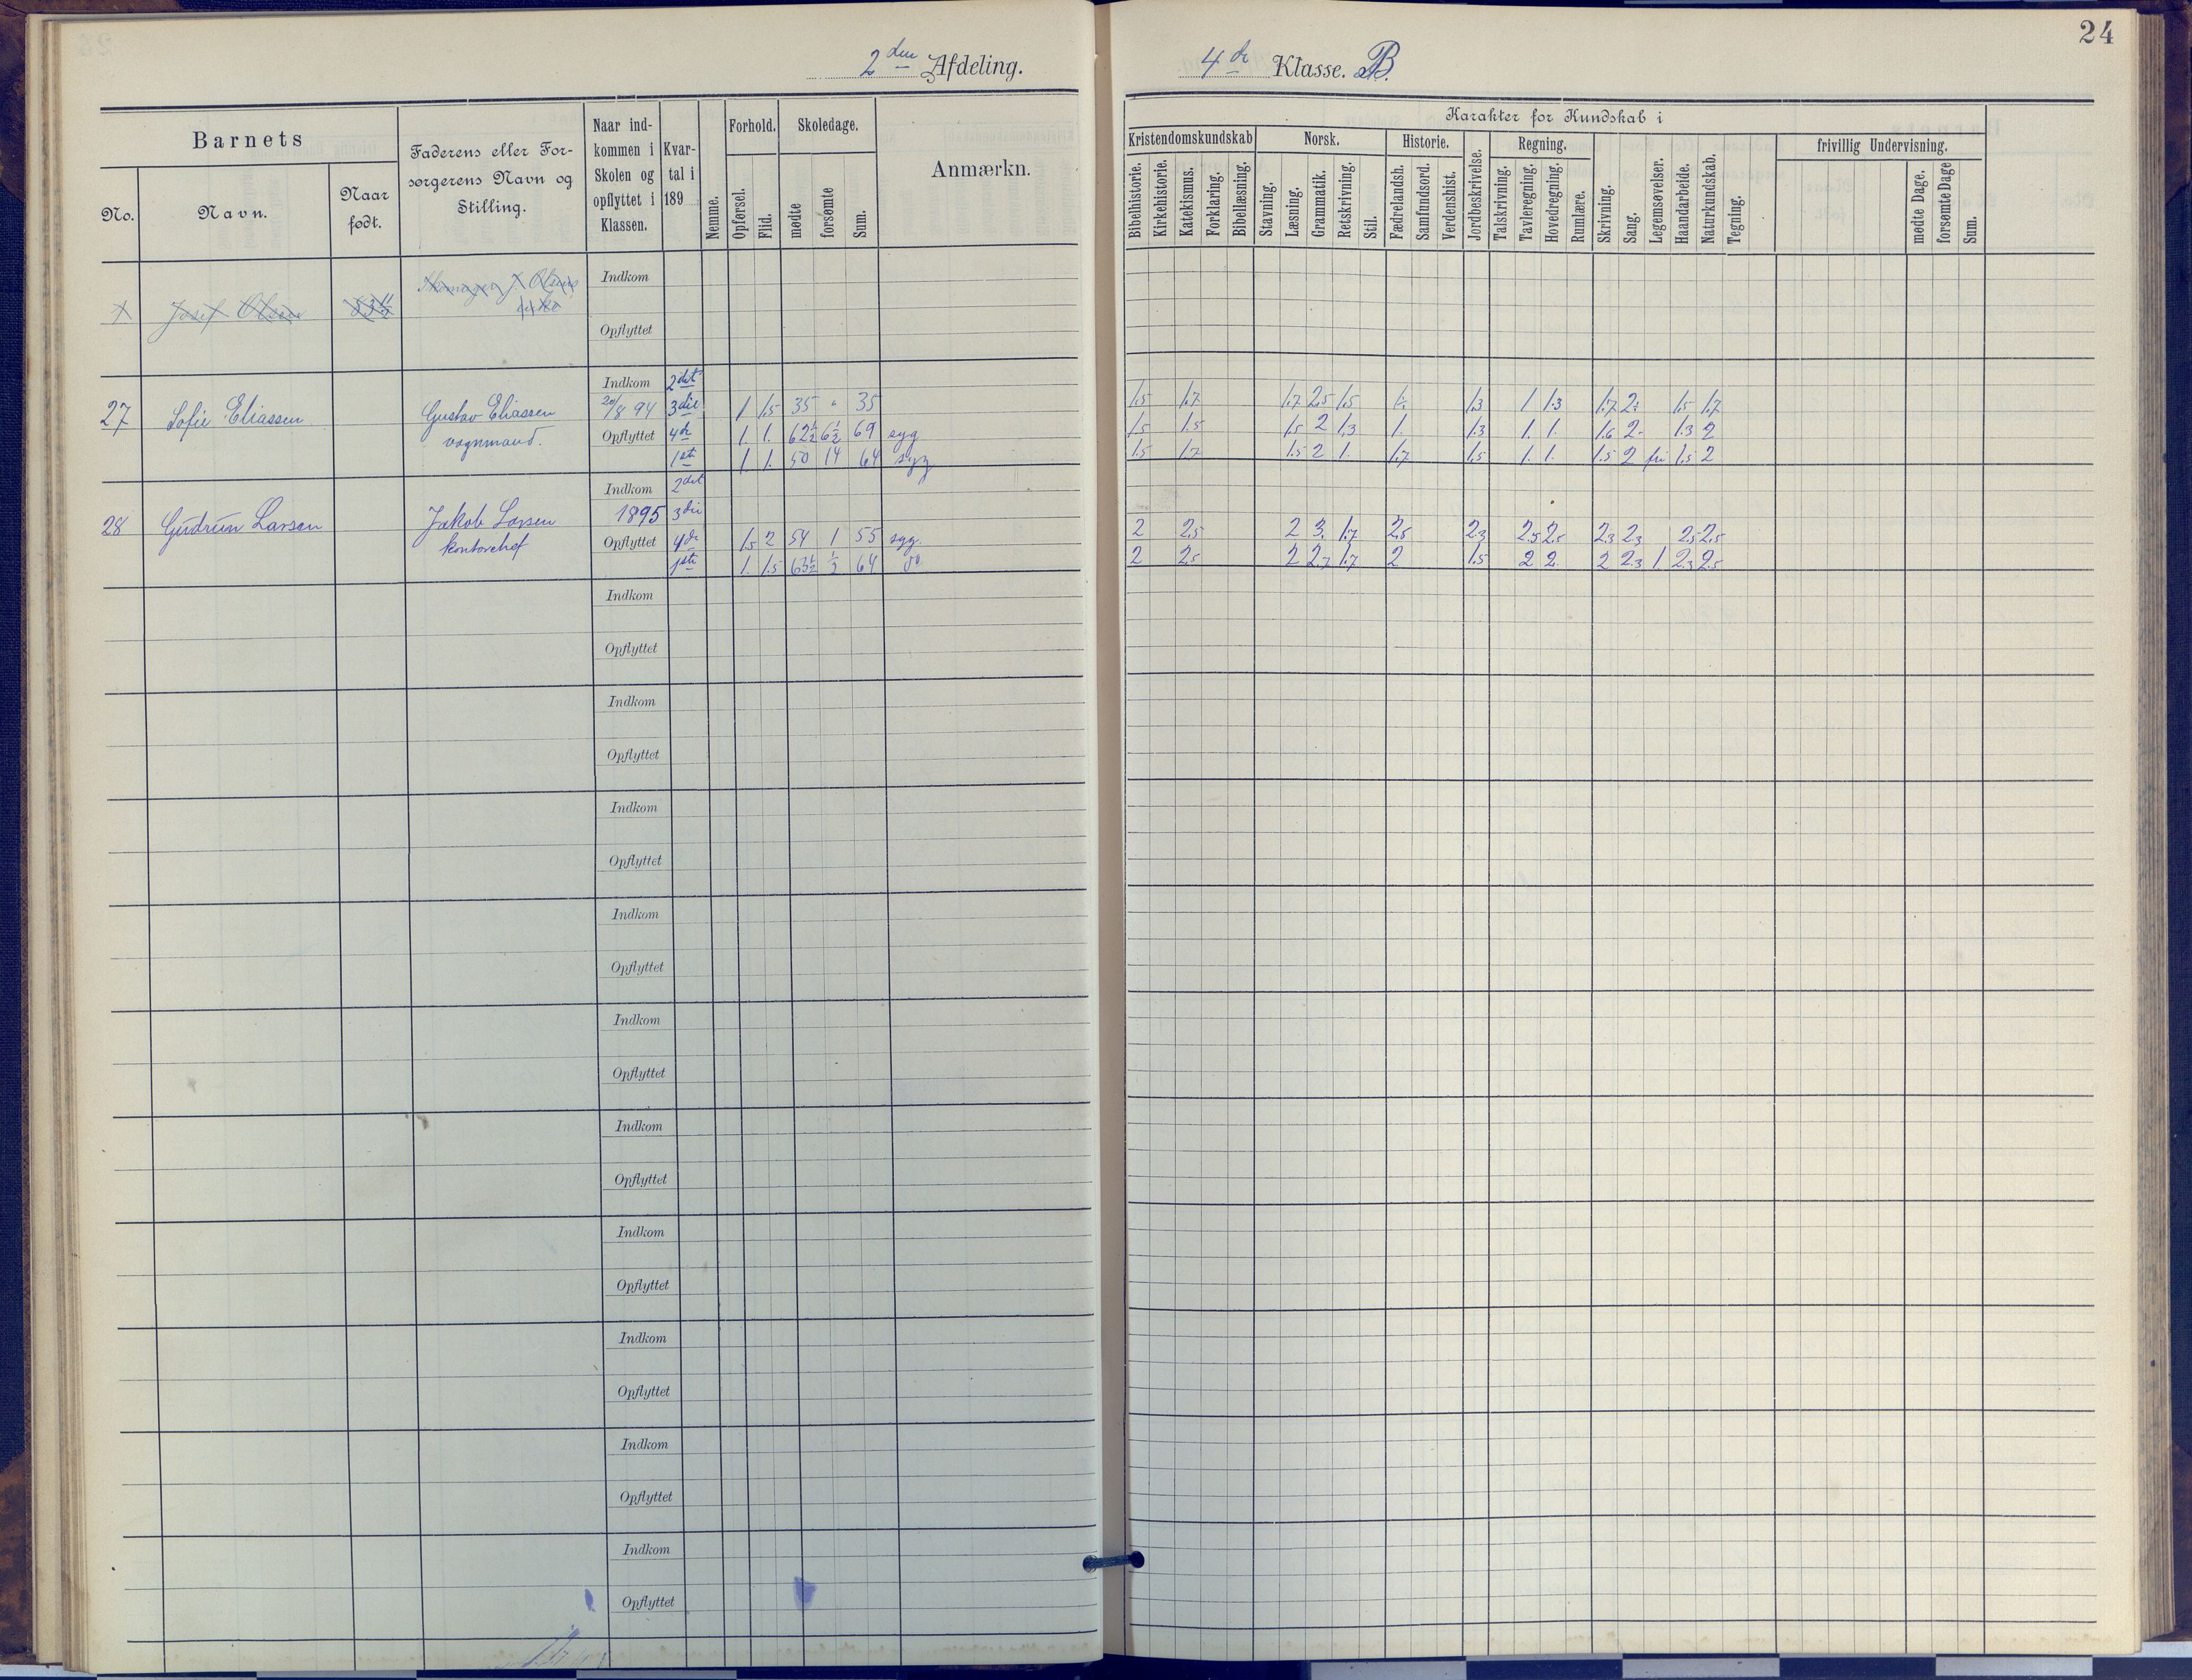 24
2den Afdeling.
4de Klasse. B.
Barnets
No.
Navn.
Naar født.
Faderens eller Forsørgerens Navn og Stilling.
Naar indkommen i Skolen og opflyttet i Klassen.
Kvartal i 189
Nemme.
Forhold.
Opførsel.
Flid.
Skoledage.
mødte
forsømte
Sum.
Anmærkn.
Karakter for Kundskab i
Kristendomskundskab
Bibelhistorie.
Kirkehistorie.
Katekismus.
Forklaring.
Bibellæsning.
Norsk.
Stavning.
Læsning.
Grammatik.
Retskrivning.
Stil.
Historie.
Fædrelandsh.
Samfundsord.
Verdenshist.
Jordbeskrivelse.
Regning.
Talskrivning.
Tavleregning.
Hovedregning.
Rumlære.
Skrivning.
Sang.
Legemsøvelser.
Haandarbeide.
Naturkundskab.
Tegning.
frivillig Undervisning.
mødte Dage.
forsømte Dage
Sum.
Josef Olsen
Indkom
Opflyttet
27 Sofie Eliassen Gustav Eliassen
vognmand.
Indkom 2det
20/8 94 3die 1 1.5 35 " 35 1.5 1.7 1.7 2.5 1.5 1.3 1 1.3 1.7 1.5 1.7
Opflyttet 4de 1. 1. 62½ 6½ 69 syg 1.5 1.5 1.5 2 1.3 1. 1.3 1. 1. 1.6 2- 1.3 2
1ste 1. 1. 50 14 64 syg 1.5 1.7 1.5 2 1. 1.7 1.5 1. 1. 1.5 2 fri 1.5 2
28 Gudrun Larsen Jakob Larsen
kontorchef
Indkom 2det
1895 3die
Opflyttet 4de 1.5 2 54 1 55 syg. 2 2.5 2 3. 1.7 2.5 2.3 2.5 2.5 2.3 2.3 2.5 2.5
1ste 1. 1.5 63½ ½ 64 do 2 2.5 2 2.7 1.7 2 1.5 2 2. 2 2.3 1. 2.3 2.5
Indkom
Opflyttet
Indkom
Opflyttet
Indkom
Opflyttet
Indkom
Opflyttet
Indkom
Opflyttet
Indkom
Opflyttet
Indkom
Opflyttet
Indkom
Opflyttet
Indkom
Opflyttet
Indkom
Opflyttet